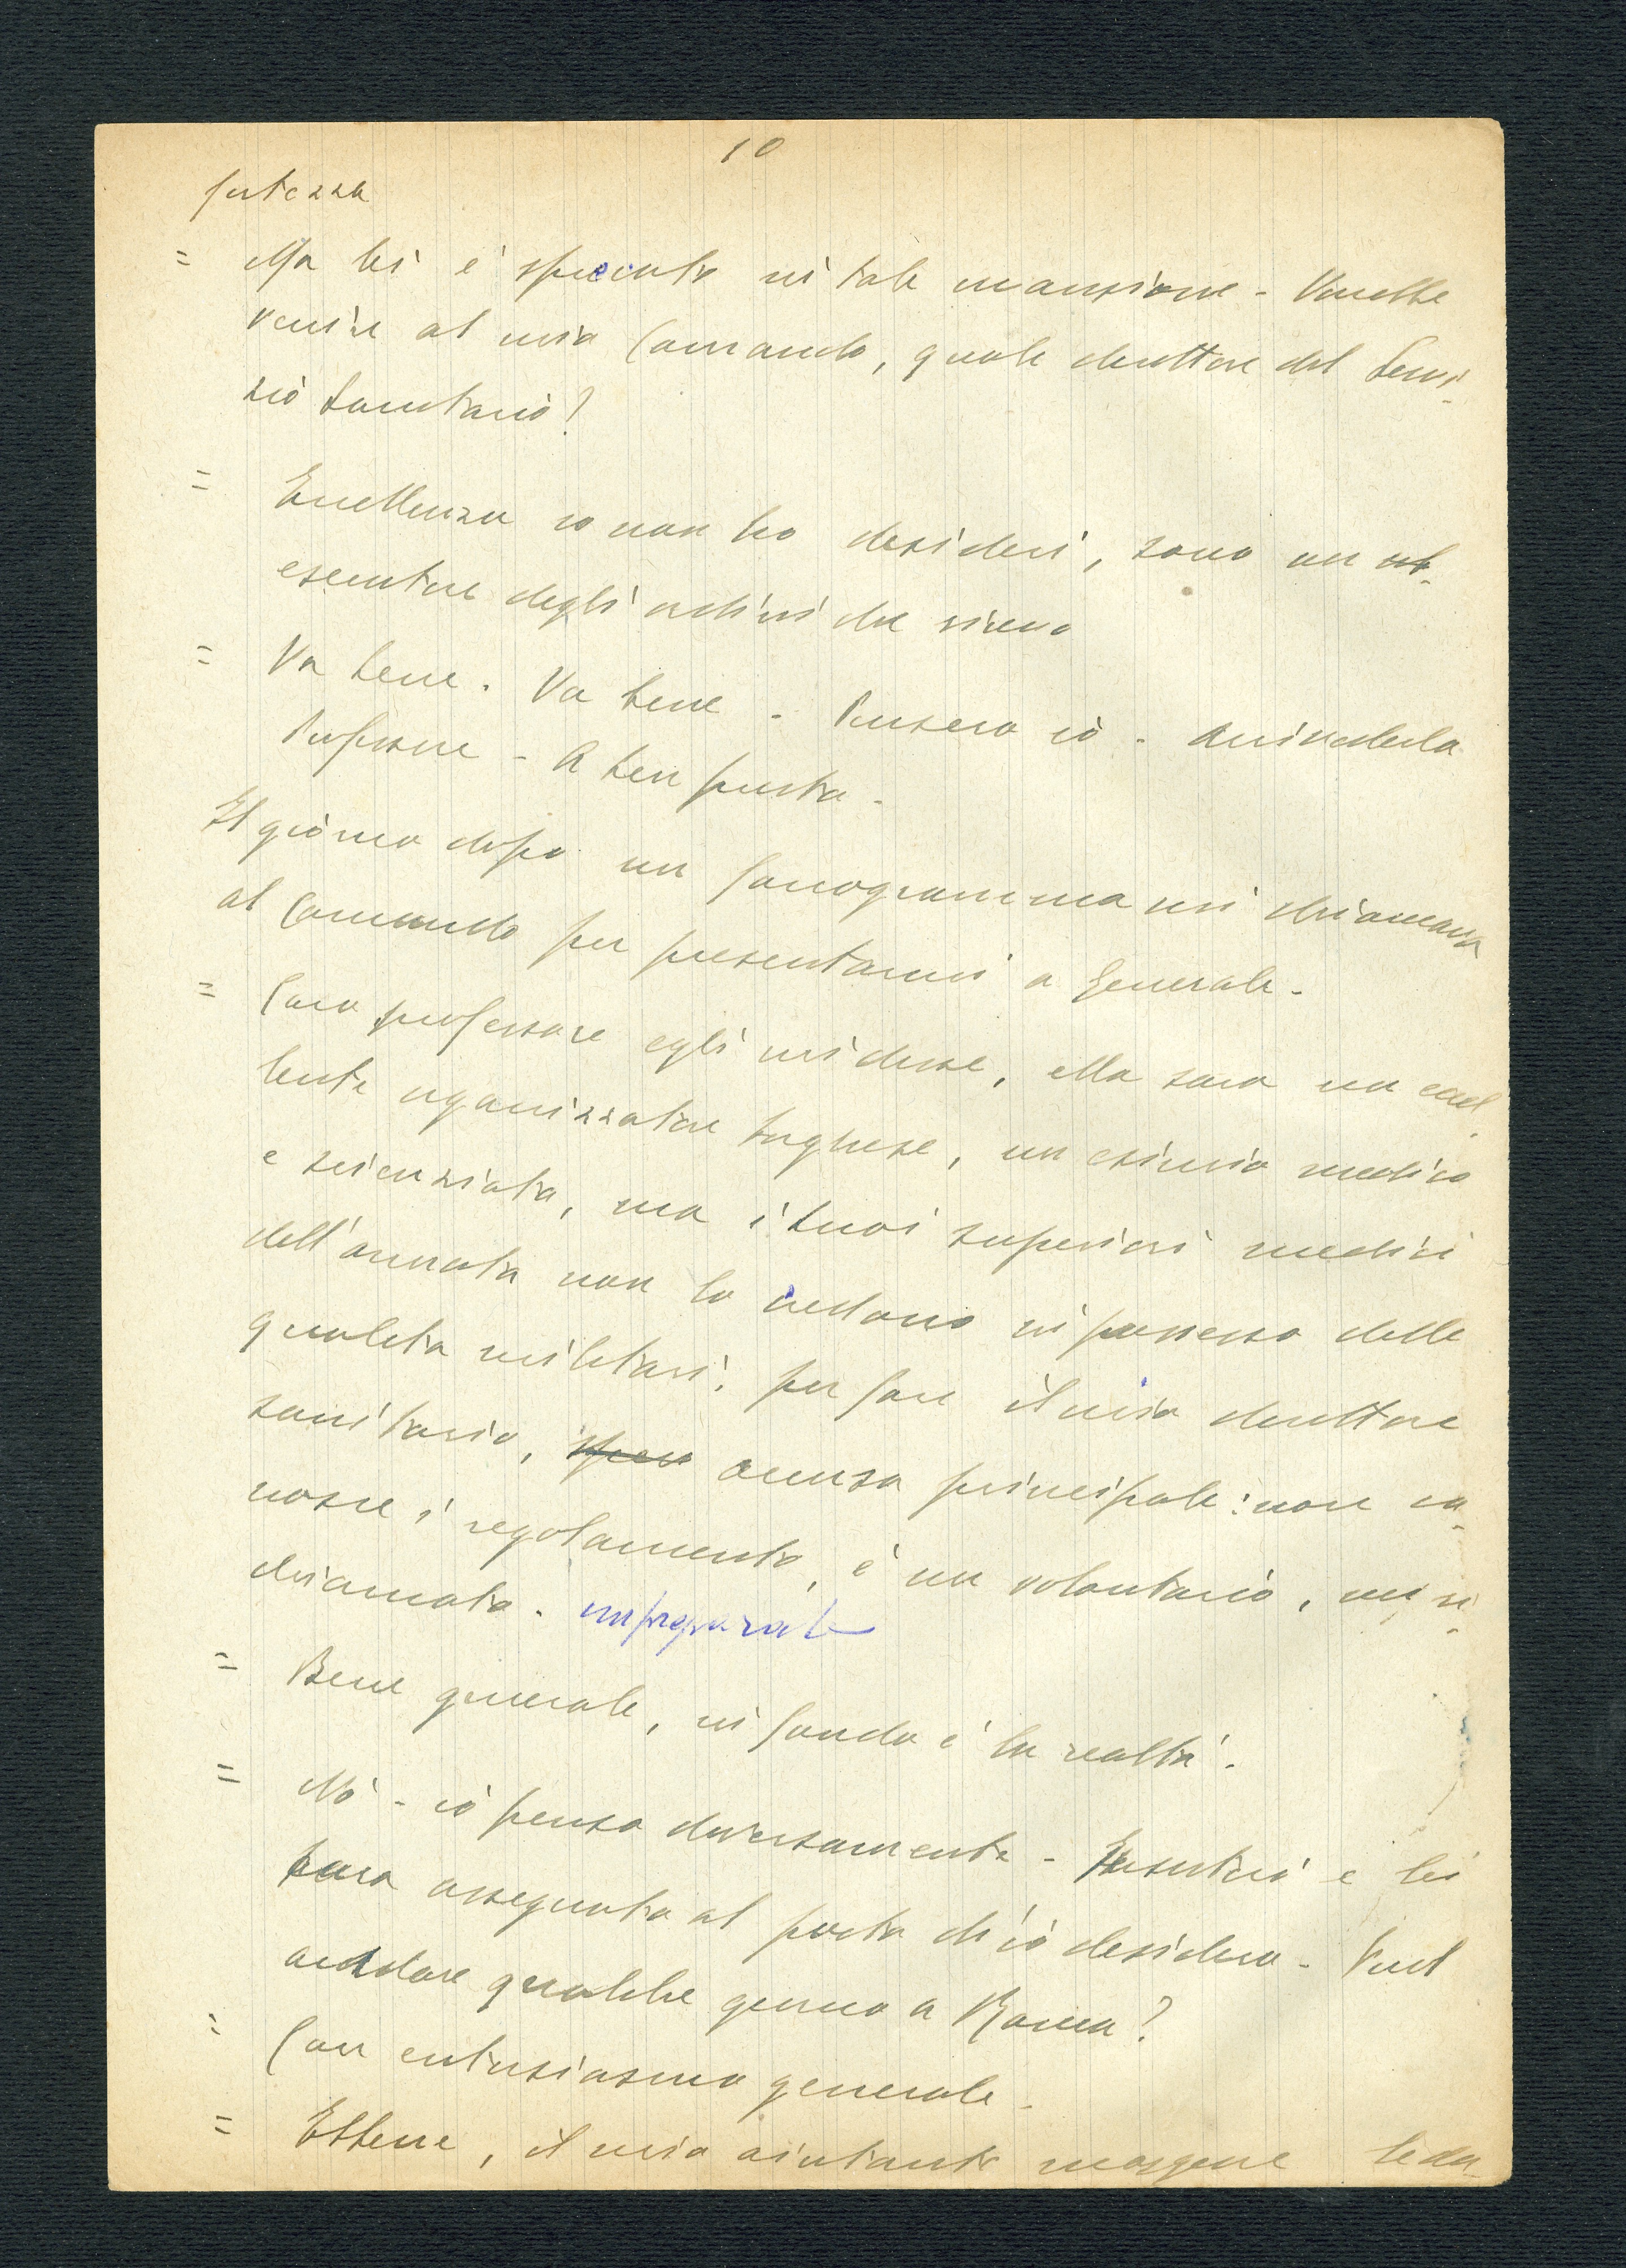 10
fortezza
= Ma lei è sprecato in tale mansione - Vorrebbe
venire al mio Comando, quale direttore del Servi-
zio Sanitario?
= Eccellenza io non ho desideri, sono un
esecutore degli ordini che ricevo
= Va bene. Va bene - Penserò io - Arrivederla
Professore - A ben presto -
Il giorno dopo un fonogramma mi chiamava
al Comando per presentarmi a Generale -
= Caro professore egli mi disse, ella sarà un eccel
lente organizzatore borghese, un esimio medico
e scienziato, ma i suoi superiori medici
dell'armata non lo credono in possesso delle
qualità militari, per fare il mio direttore
sanitario, accusa principale: non co-
nosce i regolamento, è un volontario, un ri-
chiamato. impreparato
= Bene generale, in fondo è la realtà -
= No - io penso diversamente - Insisterò e lei
sarà assegnato al posto ch'io desidero - Vuol
andare qualche giorno a Roma?
= Con entusiasmo generale -
= Ebbene, il mio aiutante maggiore le da-